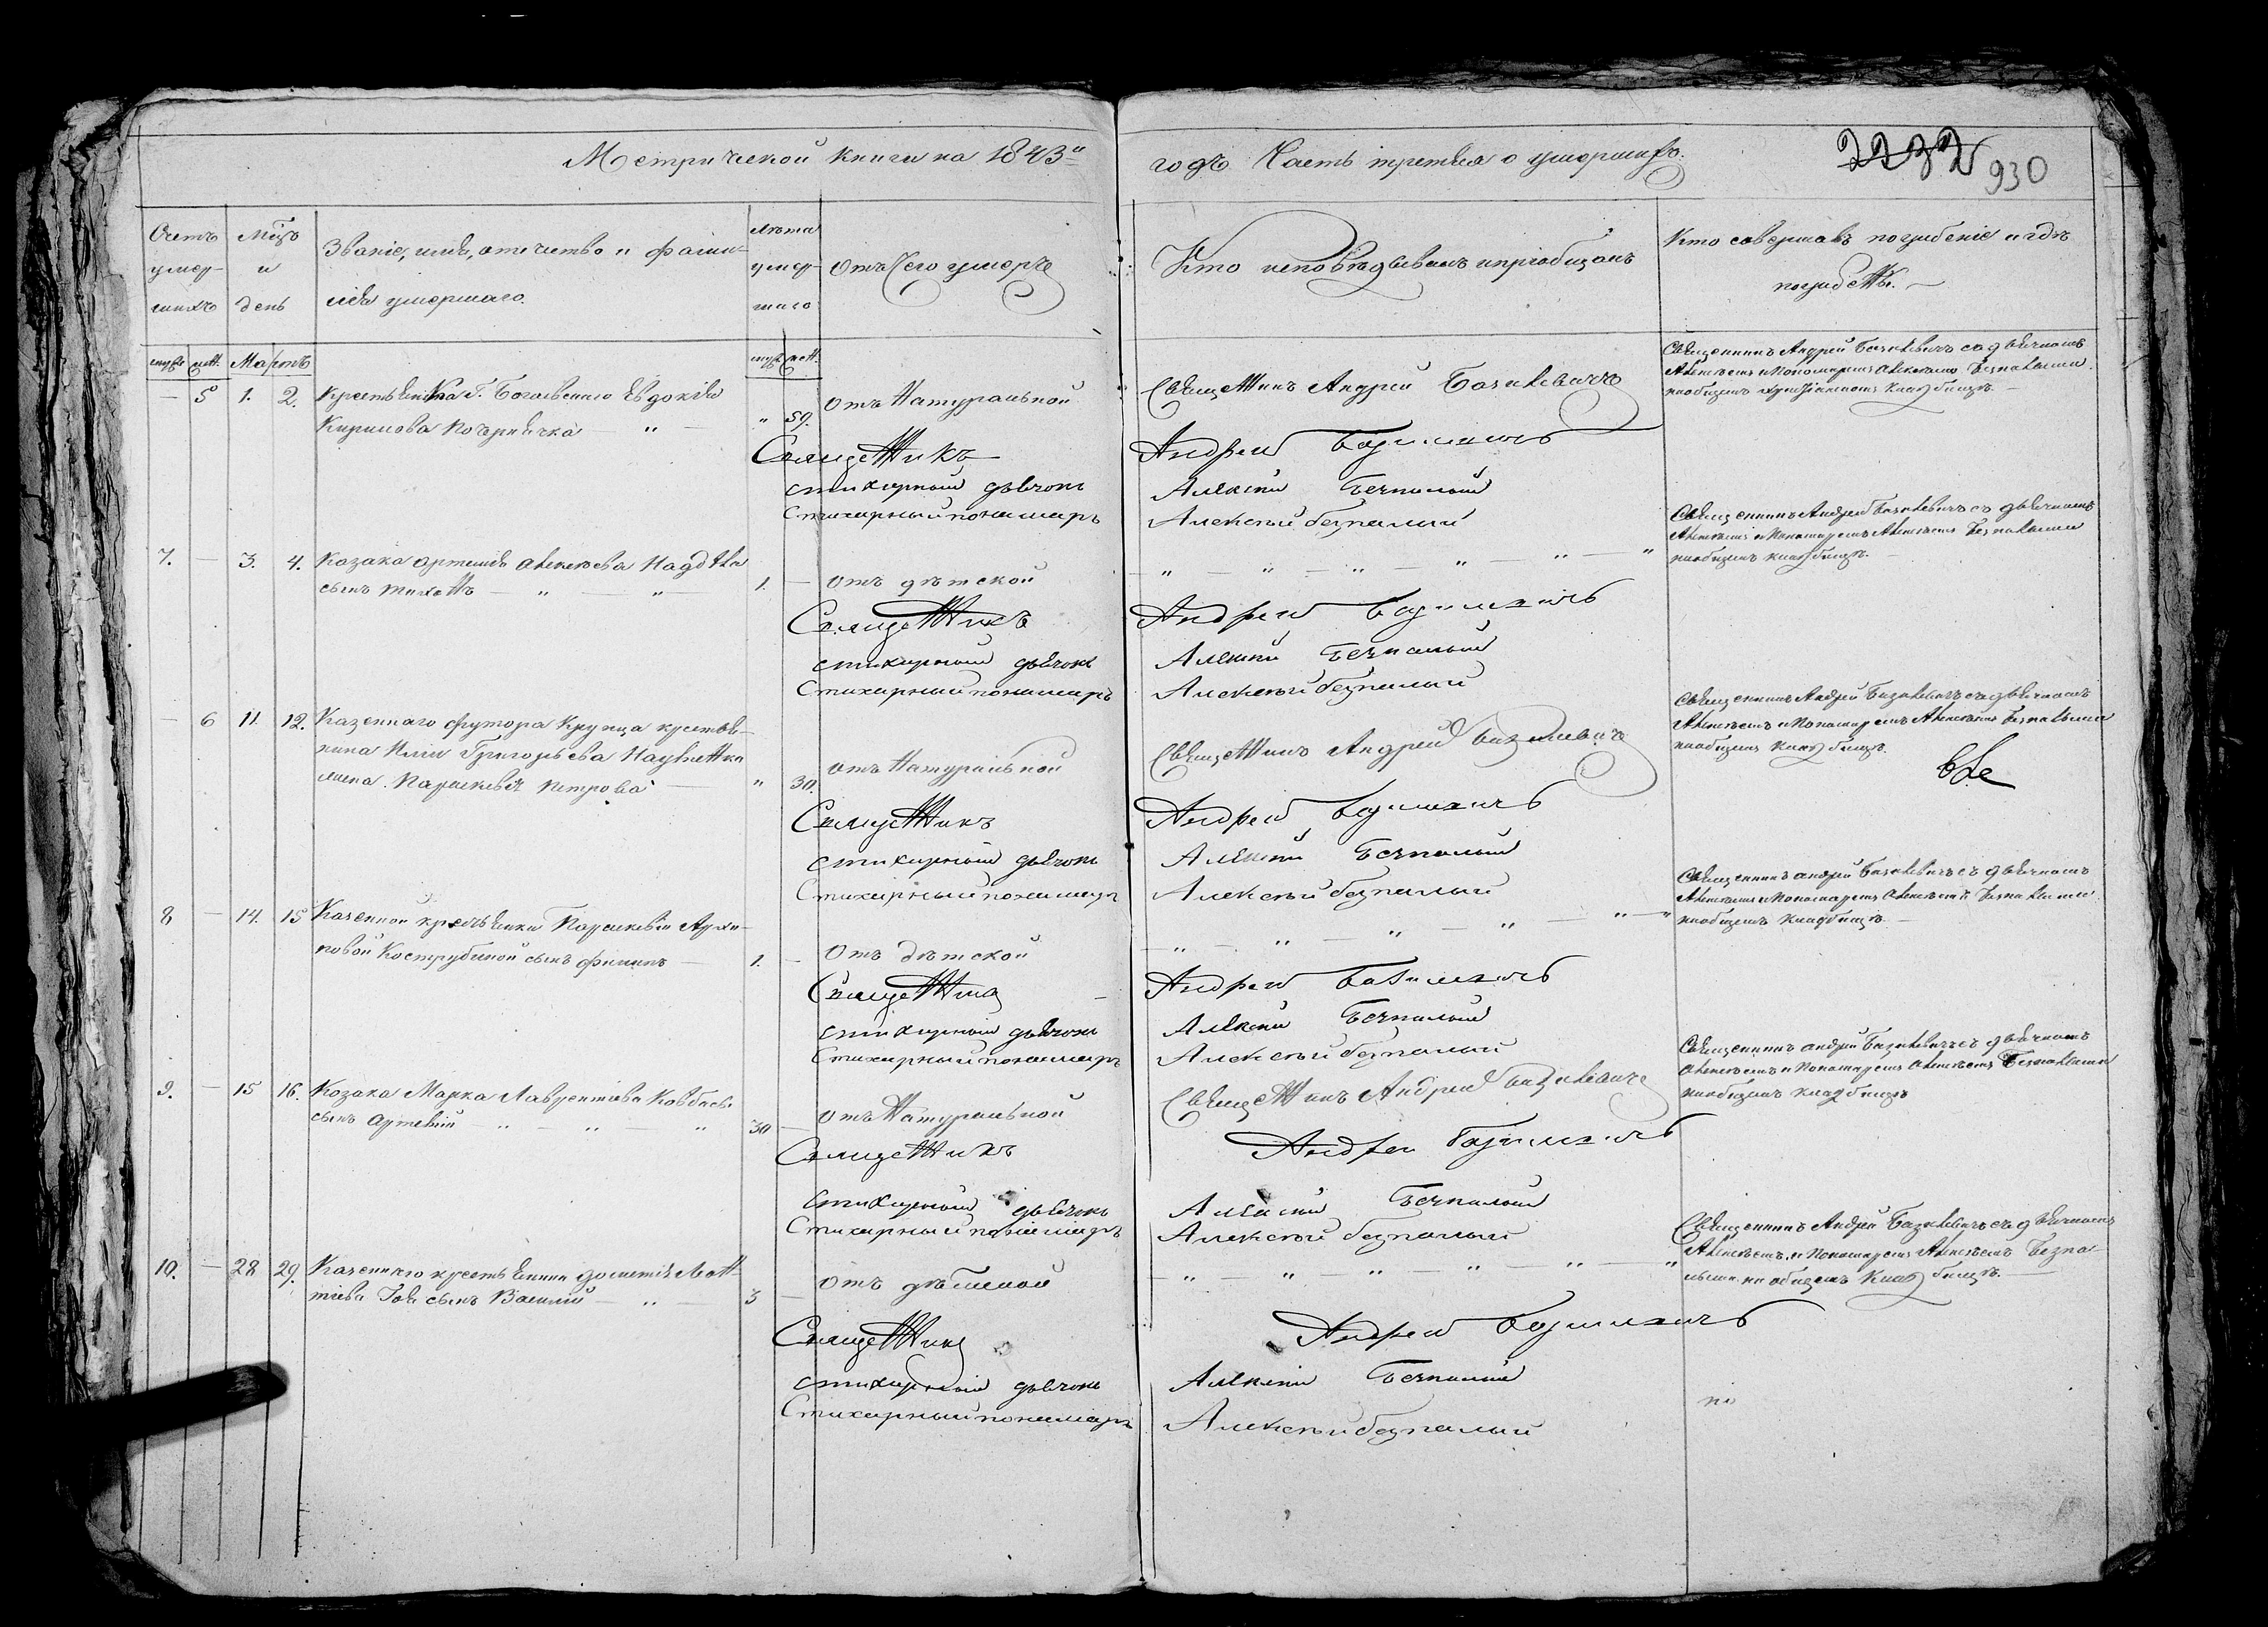 Метрической книги на 1843й
годъ Часть третья о умершихъ.
2232
930
Счетъ умер- шихъ
Мѣсъ и день
Званіе, имя, отечество и фами-
лія умершаго.
лѣта умер- шаго
Отъ чего умеръ
Кто исповѣдывалъ и пріобщалъ
Кто совершалъ погребеніе и гдѣ
погребены.
муж. жен. Мартъ муж. жен.
— 5 1. 2. Крестьянка Г. Богаевскаго Евдокія
Кирилова — " —
" 59.
Отъ Натуральной
Священникъ Андрей Базилевичъ
Священникъ Андрей Базилевичъ съ дьячкомъ
Алексѣемъ и Пономаремъ Алексѣемъ Безпалыми
на общемъ христіанскомъ кладбищѣ. —
Священникъ Андрей Базилевичъ
стихарный дьячокъ Алексій Безпалый
Стихарный пономарь Алексѣй Безпалый
7. — 3. 4. Козака Артема Алексѣева
сынъ — " — "
1. —
Отъ дѣтской
— " — " — " — " — " — "
Священникъ Андрей Базилевичъ съ дьячкомъ
Алексѣемъ и Пономаремъ Алексѣемъ Безпалыми
на общемъ кладбищѣ. —
Священникъ Андрей Базилевичъ
стихарный дьячокъ Алексій Безпалый
Стихарный пономарь Алексѣй Безпалый
— 6 11. 12. Казеннаго хутора Крупца крестья-
нина Иліи Григорьева
жена Параскевія Петрова —
" 30.
Отъ Натуральной
Священникъ Андрей Базилевичъ
Священникъ Андрей Базилевичъ съ дьячкомъ
Алексѣемъ и Пономаремъ Алексѣемъ Безпалыми
на общемъ кладбищѣ.
Священникъ Андрей Базилевичъ
стихарный дьячокъ Алексій Безпалый
Стихарный пономарь Алексѣй Безпалый
8 — 14. 15 Казенной крестьянки Параскевіи Архи-
повой Кострубиной сынъ Филипъ —
1. —
Отъ дѣтской
— " — " — " — " — " — "
Священникъ Андрей Базилевичъ съ дьячкомъ
Алексѣемъ и Пономаремъ Алексѣемъ Безпалыми
на общемъ кладбищѣ. —
Священникъ Андрей Базилевичъ
стихарный дьячокъ Алексій Безпалый
Стихарный пономарь Алексѣй Безпалый
9. — 15 16. Козака Марка Лаврентіева Ковбасы
сынъ Артемій " — " — "
30 —
Отъ Натуральной
Священникъ Андрей Базилевичъ
Священникъ Андрей Базилевичъ съ дьячкомъ
Алексѣемъ и Пономаремъ Алексѣемъ Безпалыми
на общемъ кладбищѣ
Священникъ Андрей Базилевичъ
стихарный дьячокъ Алексій Безпалый
Стихарный пономарь Алексѣй Безпалый
10. — 28 29. Казеннаго крестьянина Мат-
тіева сынъ Василій — " —
3 —
Отъ
— " — " — " — " — " — "
Священникъ Андрей Базилевичъ съ дьячкомъ
Алексѣемъ и Пономаремъ Алексѣемъ Безпа-
лыми на общемъ кладбищѣ. —
Священникъ Андрей Базилевичъ
стихарный дьячокъ Алексій Безпалый
Стихарный пономарь Алексѣй Безпалый